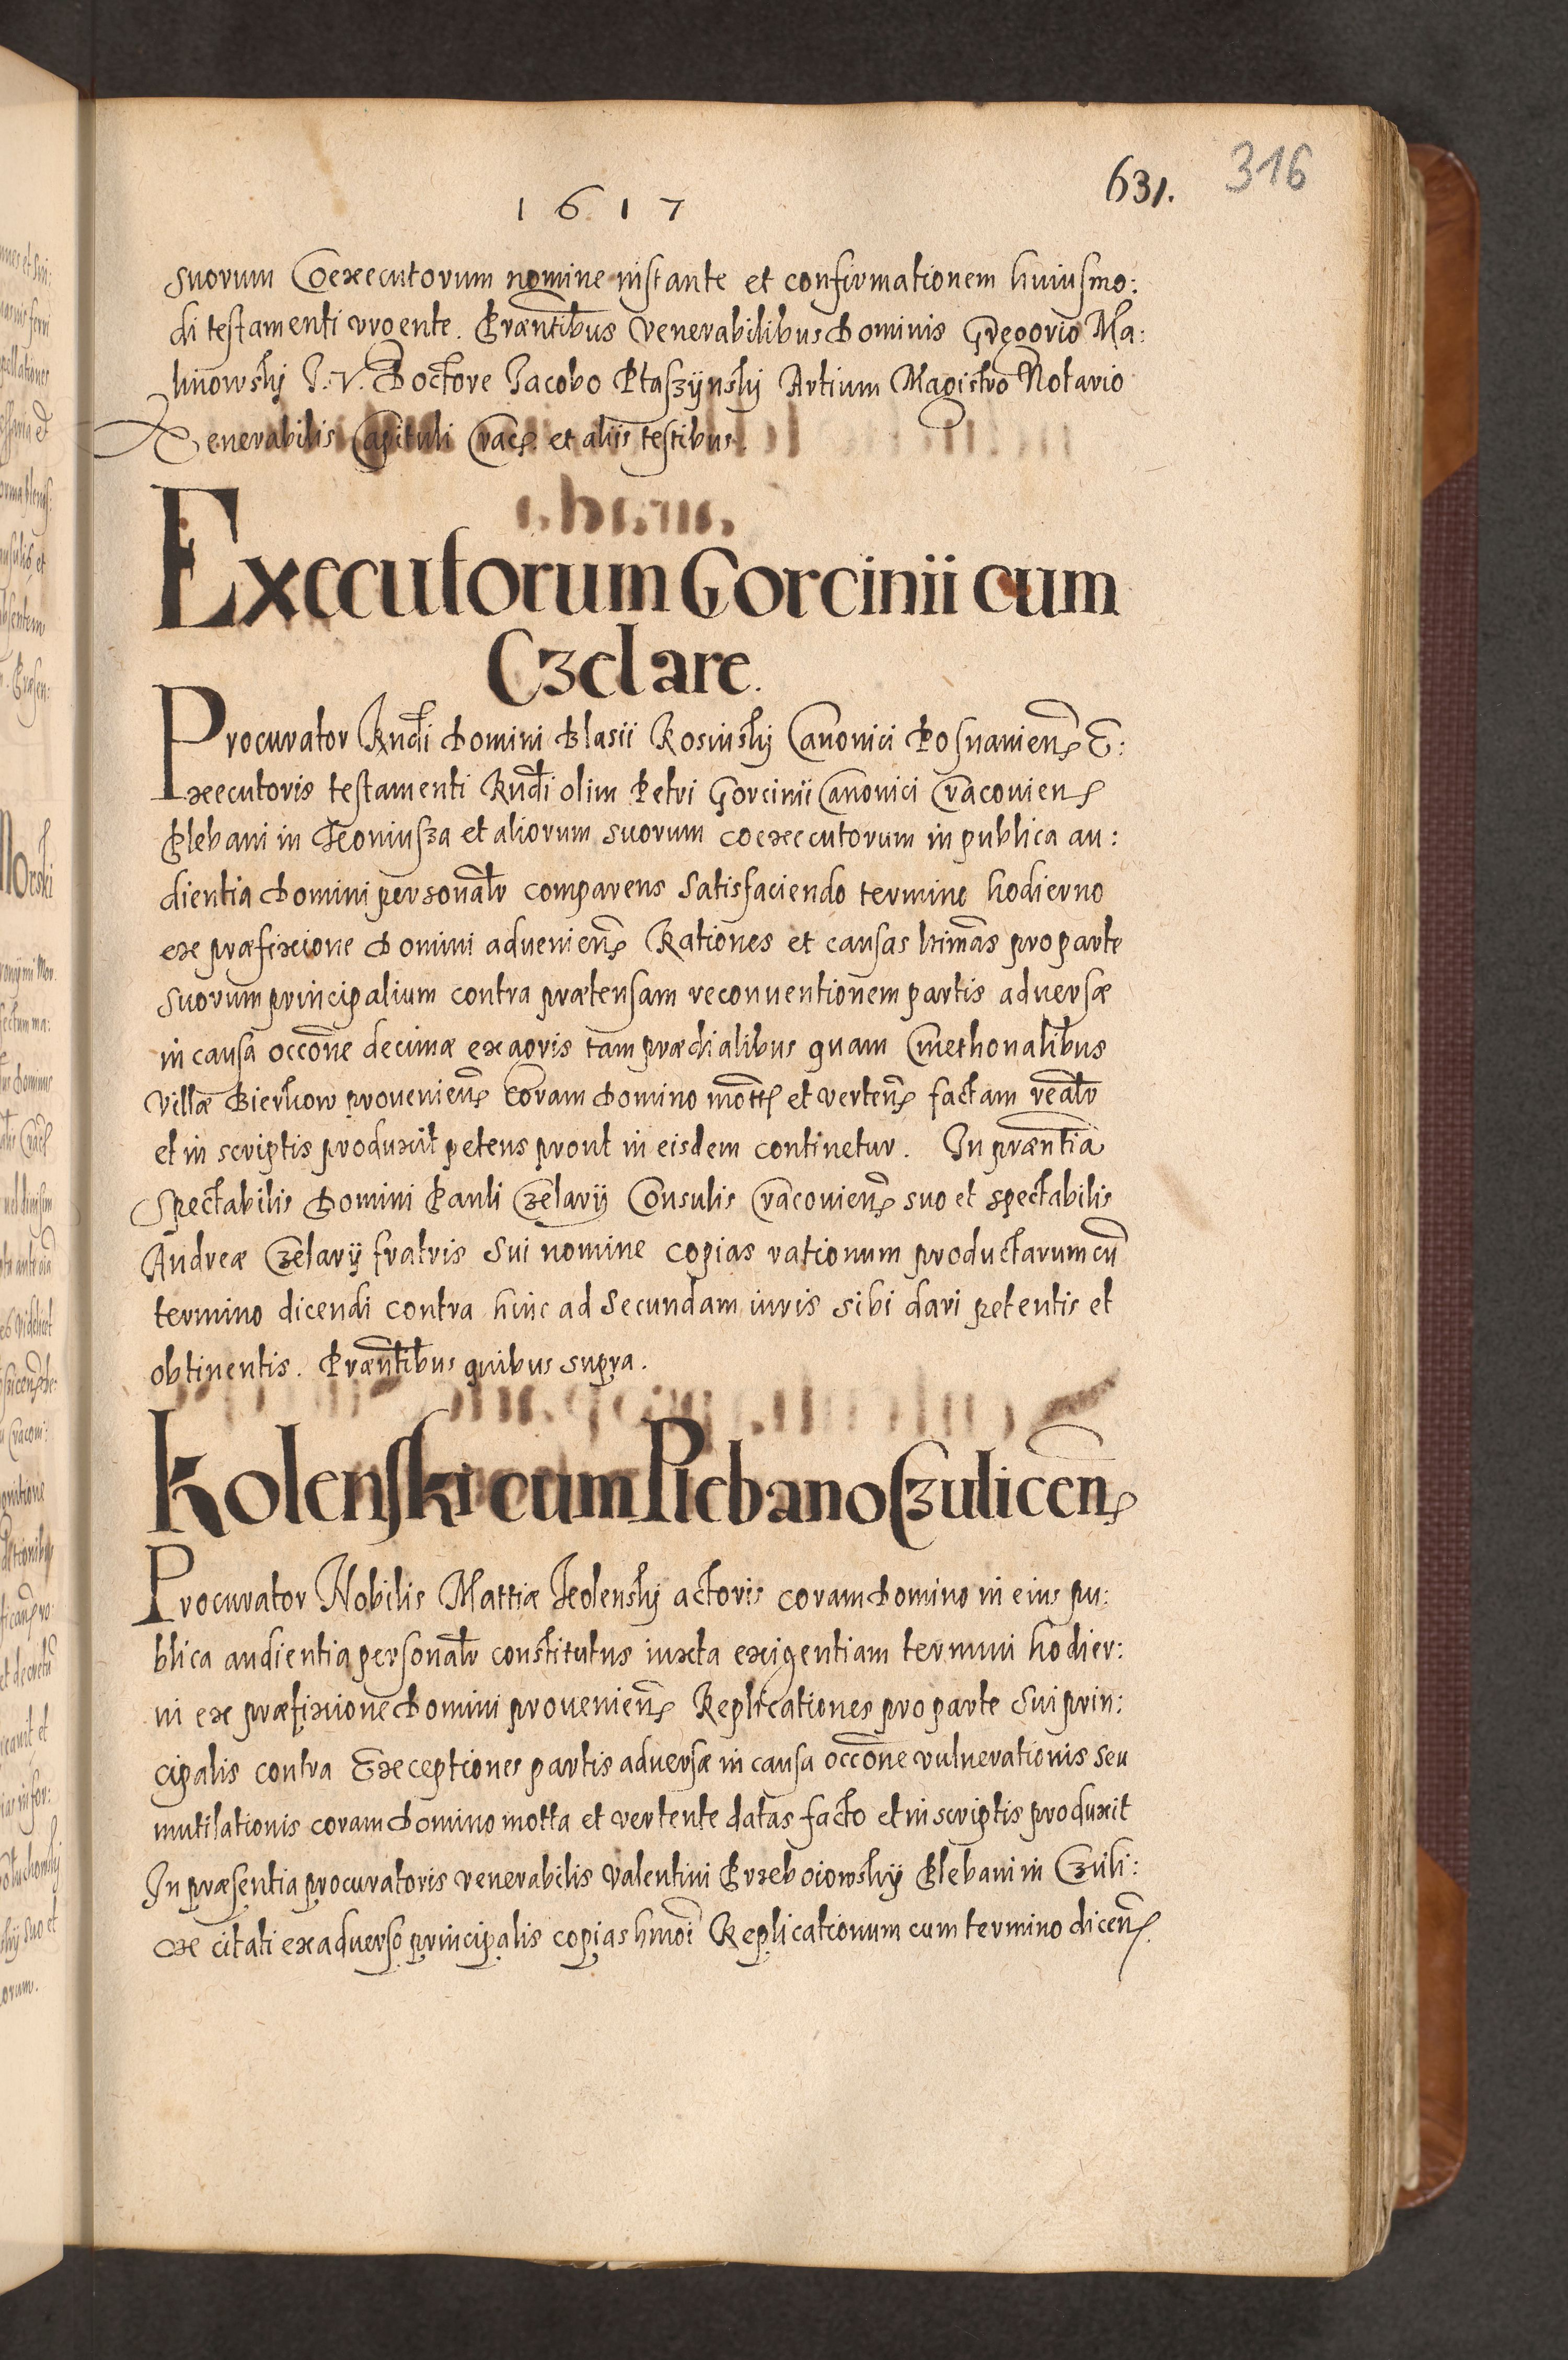 631. 316
1617
suorum Coexecutorum nomine instante et confirmationem huiusmo:
di testamenti urgente. Præntibus venerabilibus Dominis Gregorio Ma:
linowskj J. V. Doctore Jacobo Ptaszÿnskj Artium Magistro Notario
Venerabilis Capituli Crac. et aliis testibus.
Executorum Gorcinii cum
Czelare.
Procurator Rndi Domini Blasii Kosinskj Canonici Posnanien. E:
xecutoris testamenti Rndi olim Petri Gorcinii Canonici Cracovien.
Plebani in Koniusza et aliorum suorum coexecutorum in publica au:
dientia Domini personalr comparens satisfaciendo termino hodierno
ex præfixione Domini advenien. Rationes et causas ltimas pro parte
suorum principalium contra prætensam reconventionem partis adversæ
in causa occone decimæ ex agris tam prædialibus quam Cmethonalibus
villæ Bierkow provenien. Coram Domino mott. et verten. factam realr
et in scriptis produxit petens prout in eisdem continetur. In præntia
Spectabilis Domini Pauli Czelarÿ Consulis Cracovien. suo et spectabilis
Andreæ Czelarÿ fratris sui nomine copias rationum productarum cu
termino dicendi contra hinc ad secundam iuris sibi dari petentis et
obtinentis. Præntibus quibus supra.
Kolenski cum Plebano Czulicen.
Procurator Nobilis Mattiæ Kolenskj actoris coram Domino in eius pu:
blica audientia personalr constitutus iuxta exigentiam termini hodier:
ni ex præfixione Domini provenien. Replicationes pro parte sui prin:
cipalis contra Exceptiones partis adversæ in causa occone vulnerationis seu
mutilationis coram Domino motta et vertente datas facto et in scriptis produxit
In præsentia procuratoris venerabilis Valentini Plebani in Czuli:
ce citati ex adverso principalis copias hmoi Replicationum cum termino dicen.